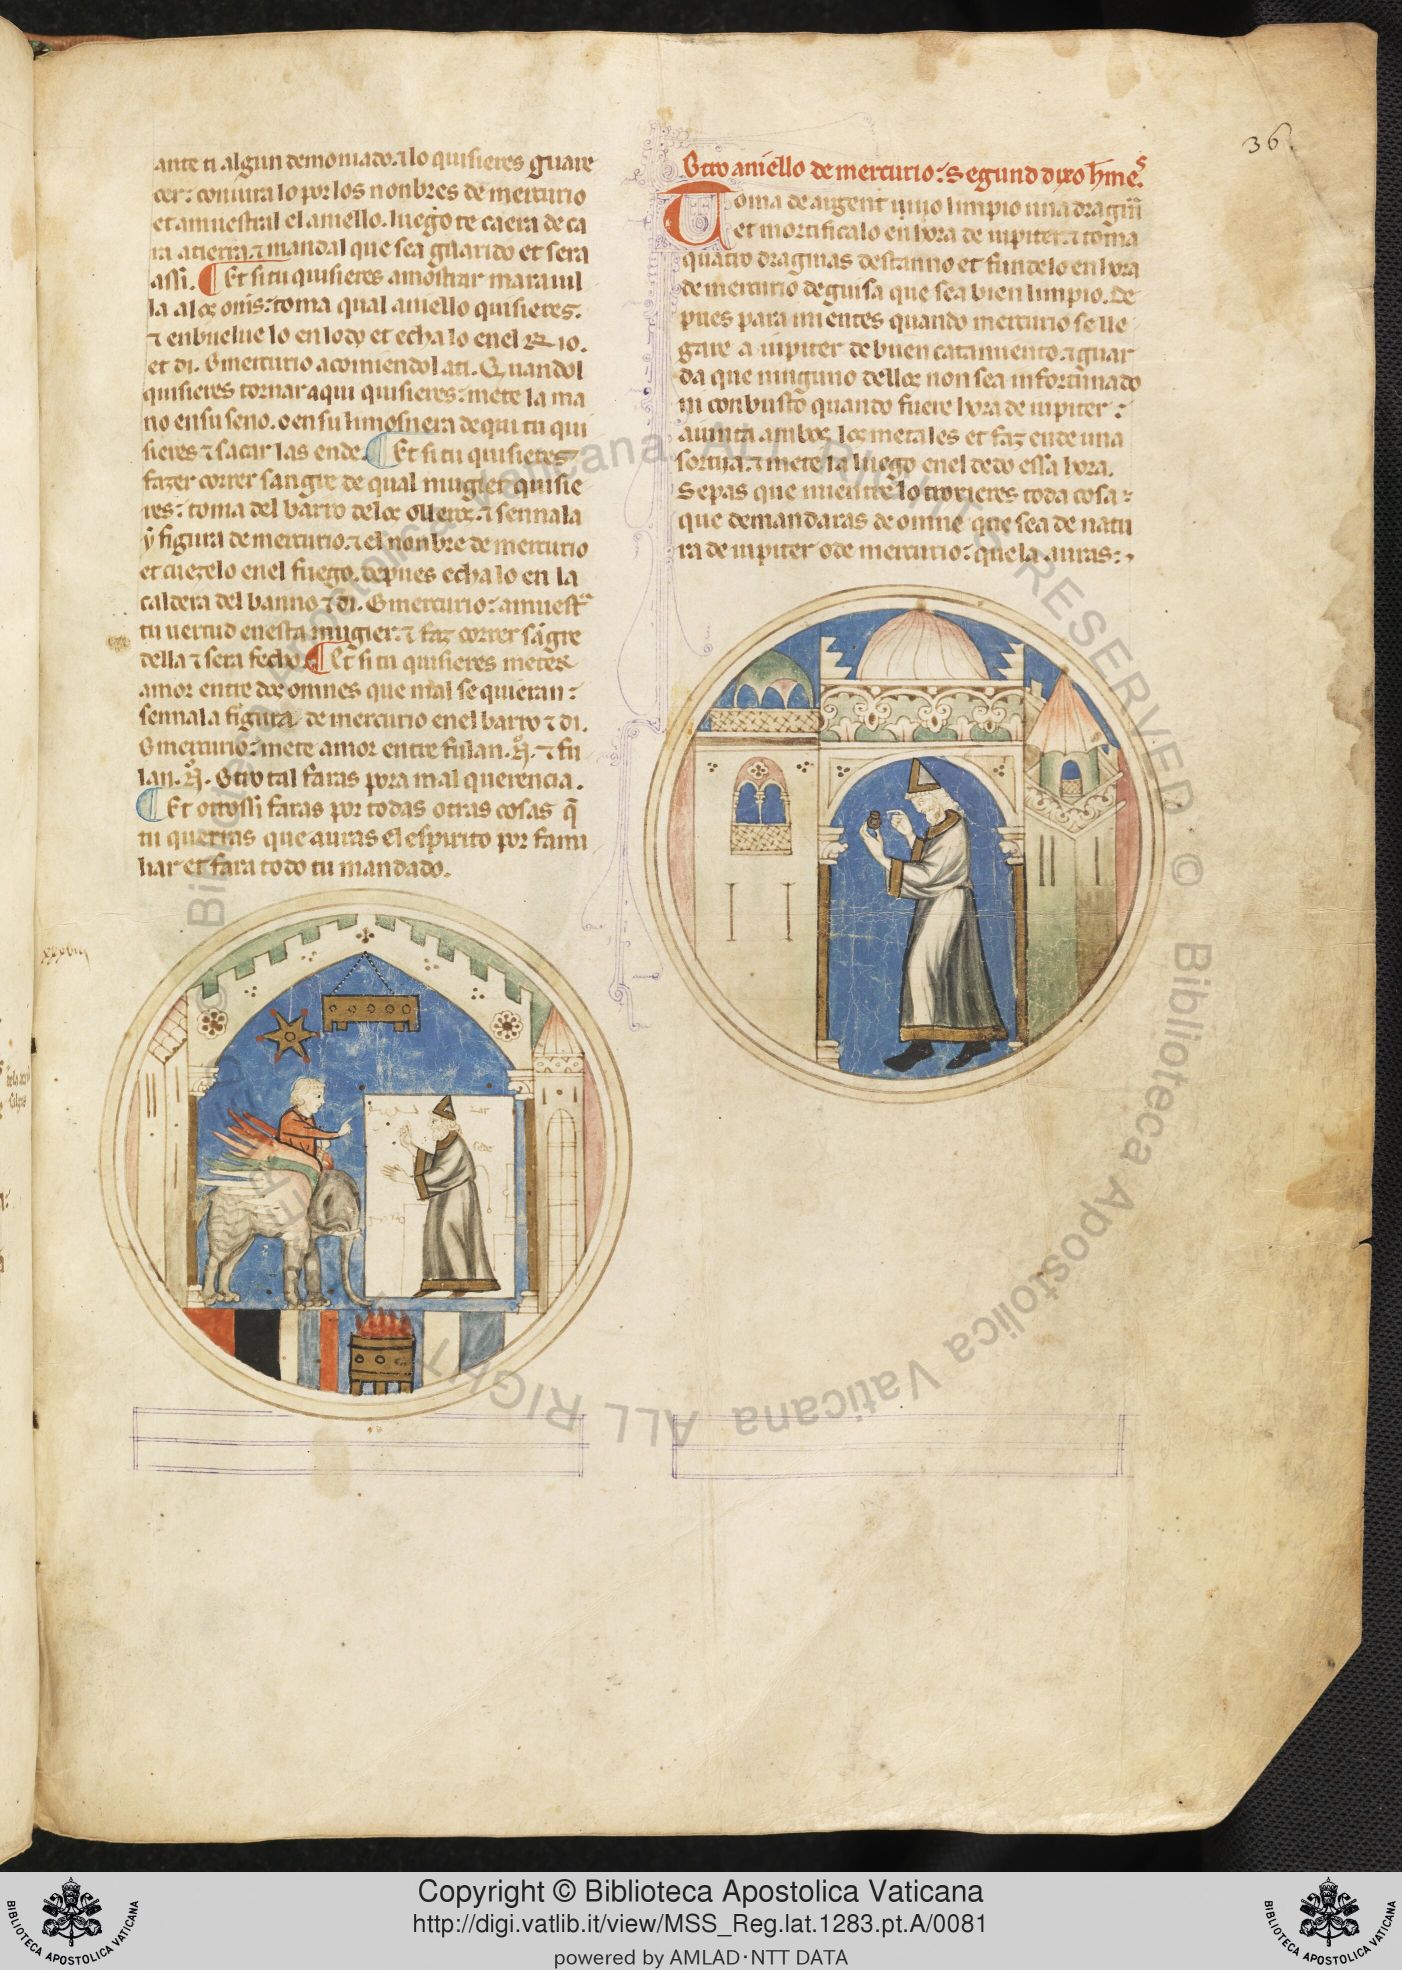 ante ti algun demoniado. ⁊ lo quisieres guare
cer: coniura lo por los nonbres de mercurio
et amuestral el aniello. luego te caera de ca
ra a tierra. ⁊ mandal que sea guarido et sera
assi. ¶ Et si tu quisieres amostrar marauil
la a los omnes: toma qual aniello quisieres.
⁊ enbuelue lo en lodo et echa lo en el Rio.
et di. O mercurio acomiendol a ti. Quandol
quisieres tornar aqui quisieres: mete la ma
no en su seno. o en su limosnera de qui tu qui
sieres ⁊ sacar las ende. ¶ Et si tu quisieres
fazer correr sangre de qual mugier quisie
res: toma del barro de los olleros. ⁊ sennala
y figura de mercurio. ⁊ el nonbre de mercurio
et cuezelo en el fuego. depues echa lo en la
caldera del banno ⁊ di. O mercurio: amuestra
tu uertud en esta mugier. ⁊ faz correr sãgre
della ⁊ sera fecho. ¶ Et si tu quisieres meter
amor entre dos omnes que mal se quieran:
sennala figura de mercurio en el barro ⁊ di.
O mercurio: mete amor entre fulan. N. ⁊ fu
lan. N. Otro tal faras pora mal querencia.
¶ Et otrossi faras por todas otras cosas q̃
tu querras que auras el espirito por fami
liar et fara todo tu mandado.
xxxviij
36.
Otro aniello de mercurio: segund dixo h̃mes.
Toma de argent uiuo limpio una dragma
et mortificalo en hora de iupiter. ⁊ toma
quatro dragmas destanno et fundelo en hora
de mercurio de guisa que sea bien limpio. De
pues para mientes quando mercurio se lle
gare a iupiter de buen catamiento. ⁊ guar
da que ninguno dellos non sea infortunado
ni conbusto quando fuere hora de iupiter:
aiunta ambos los metales et faz ende una
sortija. ⁊ mete la luego en el dedo essa hora.
Sepas que mientre lo trogieres toda cosa
que demandaras de omne que sea de natu
ra de iupiter o de mercurio: que la auras:
© Biblioteca Apostolica Vaticana ALL RIGHTS RESERVED © Biblioteca Apostolica Vaticana ALL RIGHTS RESERVED
BIBLIOTECA APOSTOLICA VATICANA
Copyright © Biblioteca Apostolica Vaticana
http://digi.vatlib.it/view/MSS_Reg.lat.1283.pt.A/0081
powered by AMLAD·NTT DATA
BIBLIOTECA APOSTOLICA VATICANA